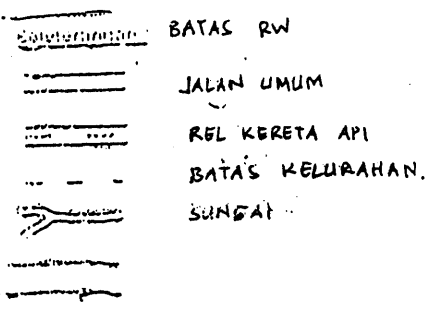 Keterangan : BATAS RW
JALAN UMUM
REL KERETA API
BATAS KELURAHAN.
SUNGAI